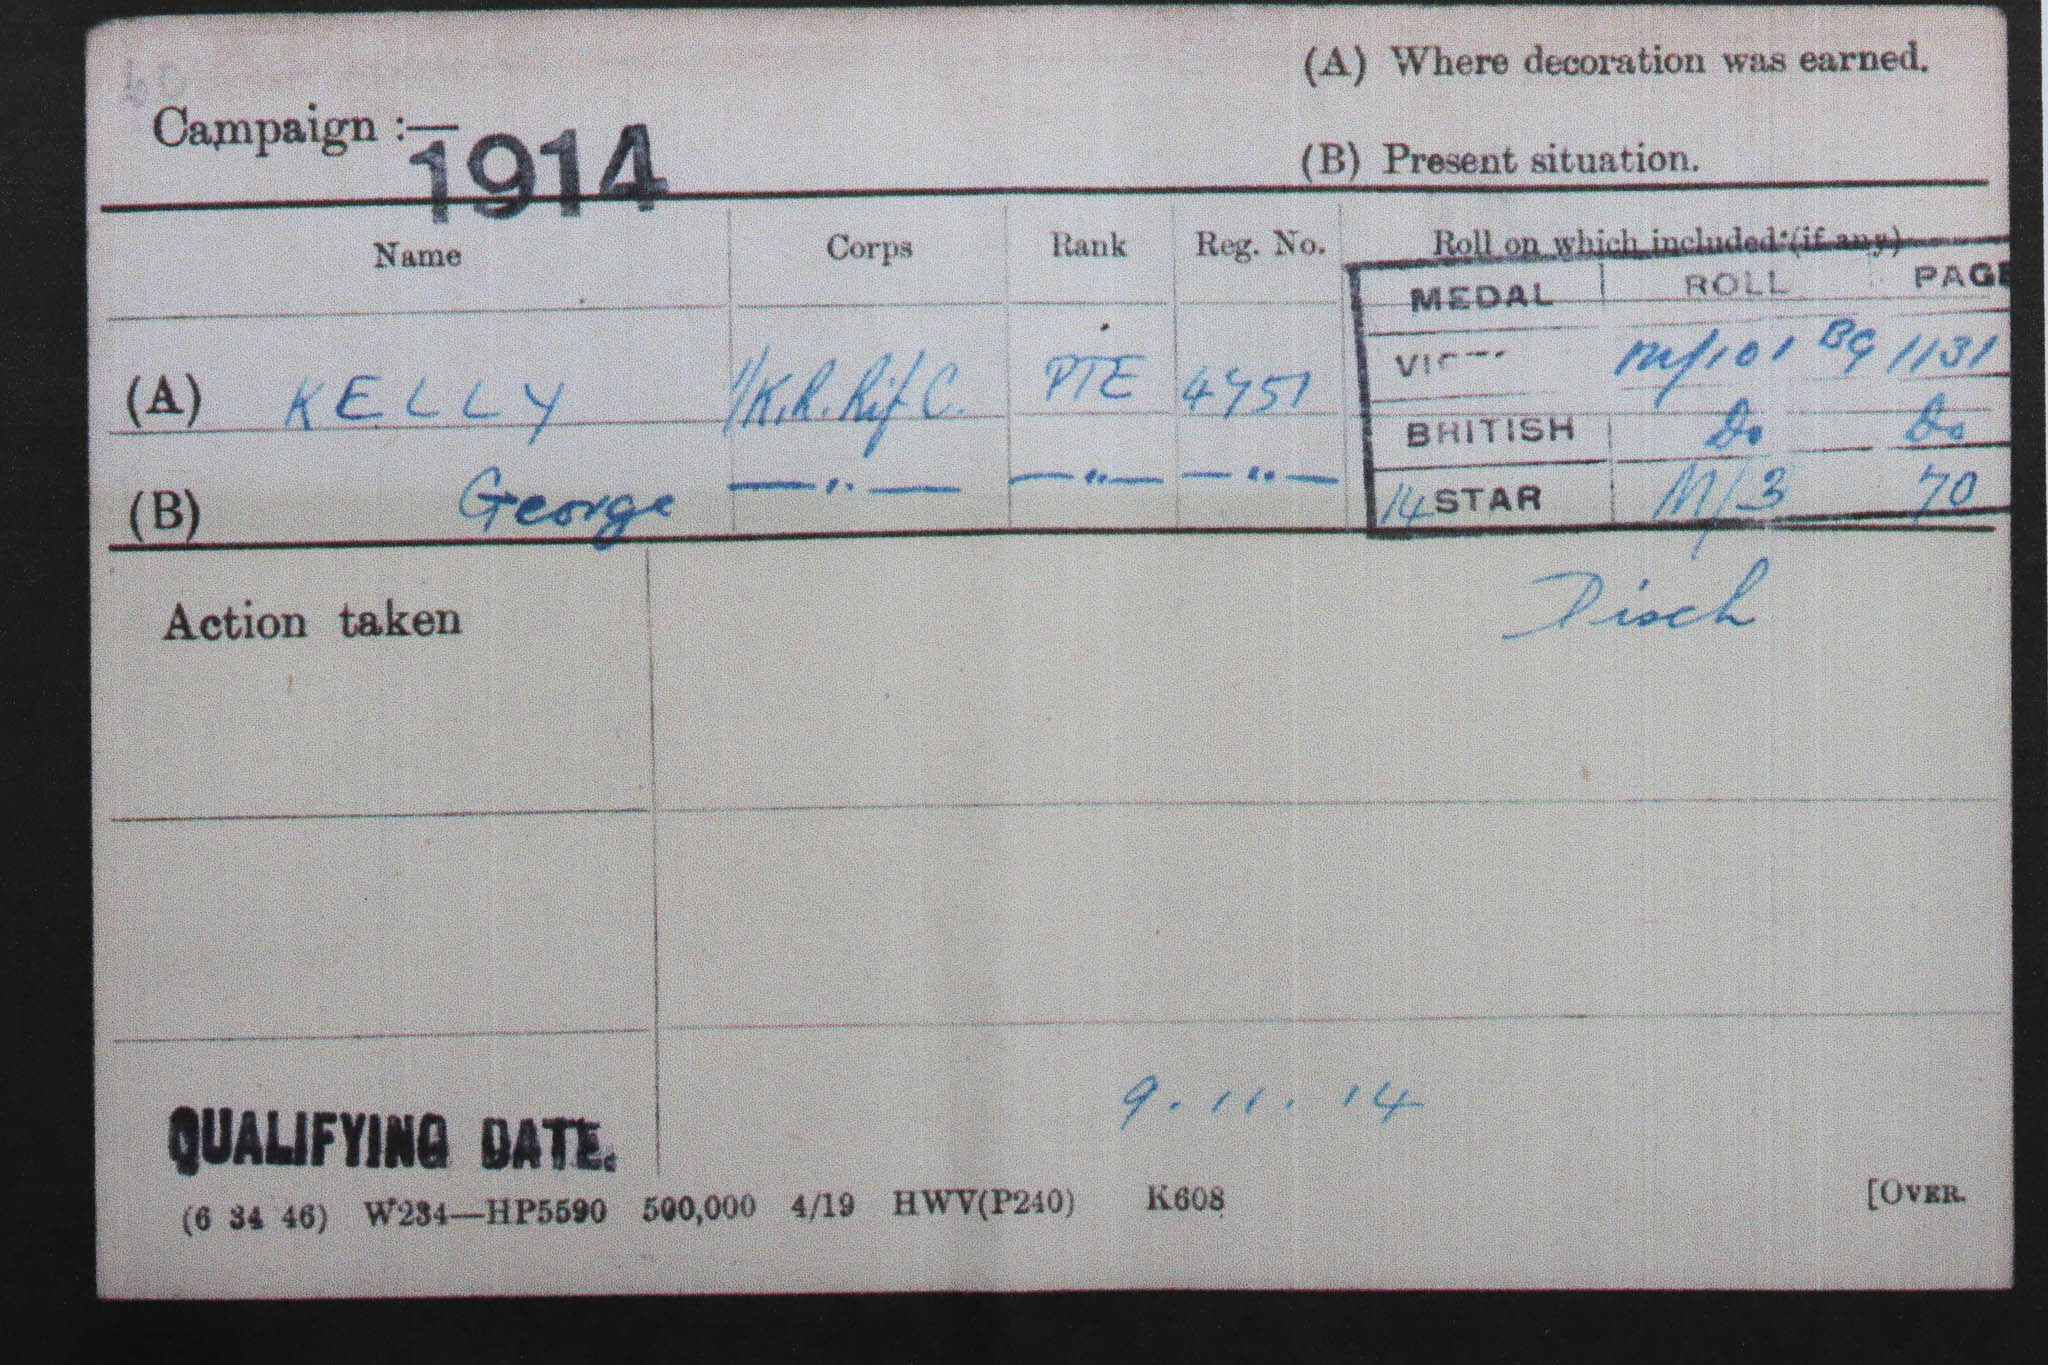 (A) Where decoration was earned.
Campaign :— 1914
(B) Present situation.
Name Corps Rank Reg. No. Roll on which included (if any)
MEDAL ROLL PAGE
(A) KELLY 1/K.R. Rif C. PTE 4751 VICT M/101 B9 1131
BRITISH Do Do
(B) George —"— —"— —"— 14 STAR M/3 70
Action taken
Disch
QUALIFYING DATE. 9.11.14
(6 34 46) W234—HP5590 500,000 4/19 HWV(P240) K608 [OVER.